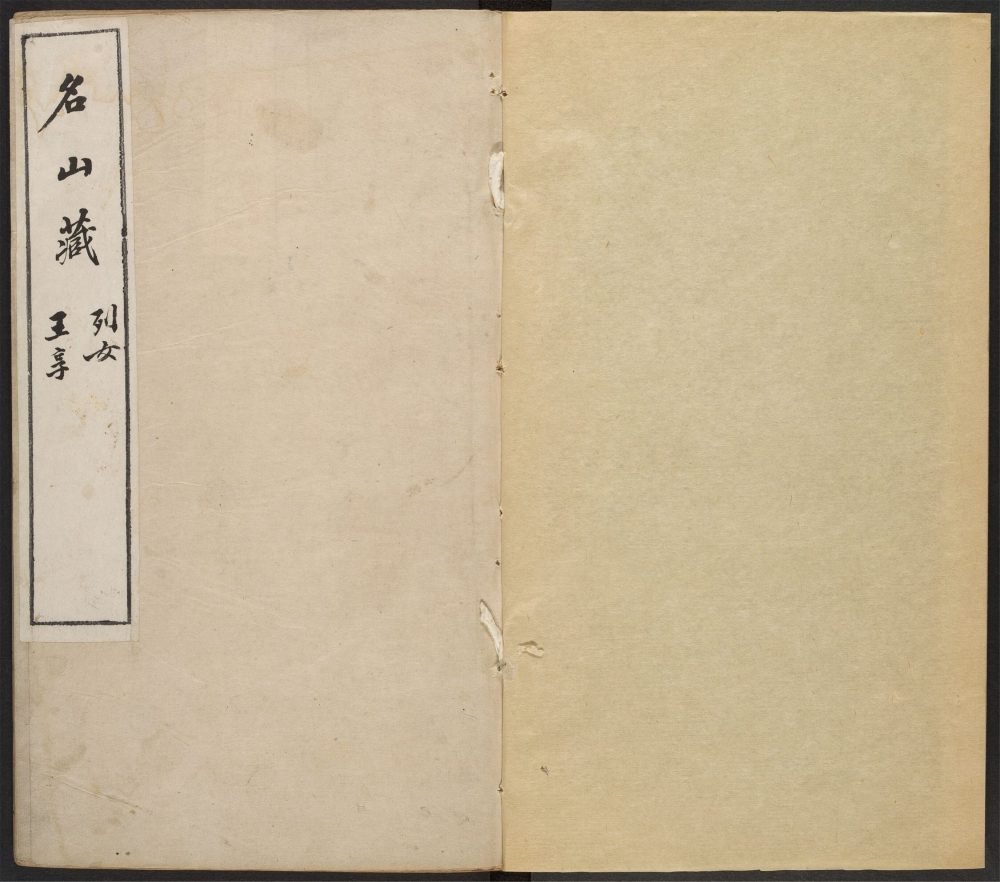 名山藏
列女
王享